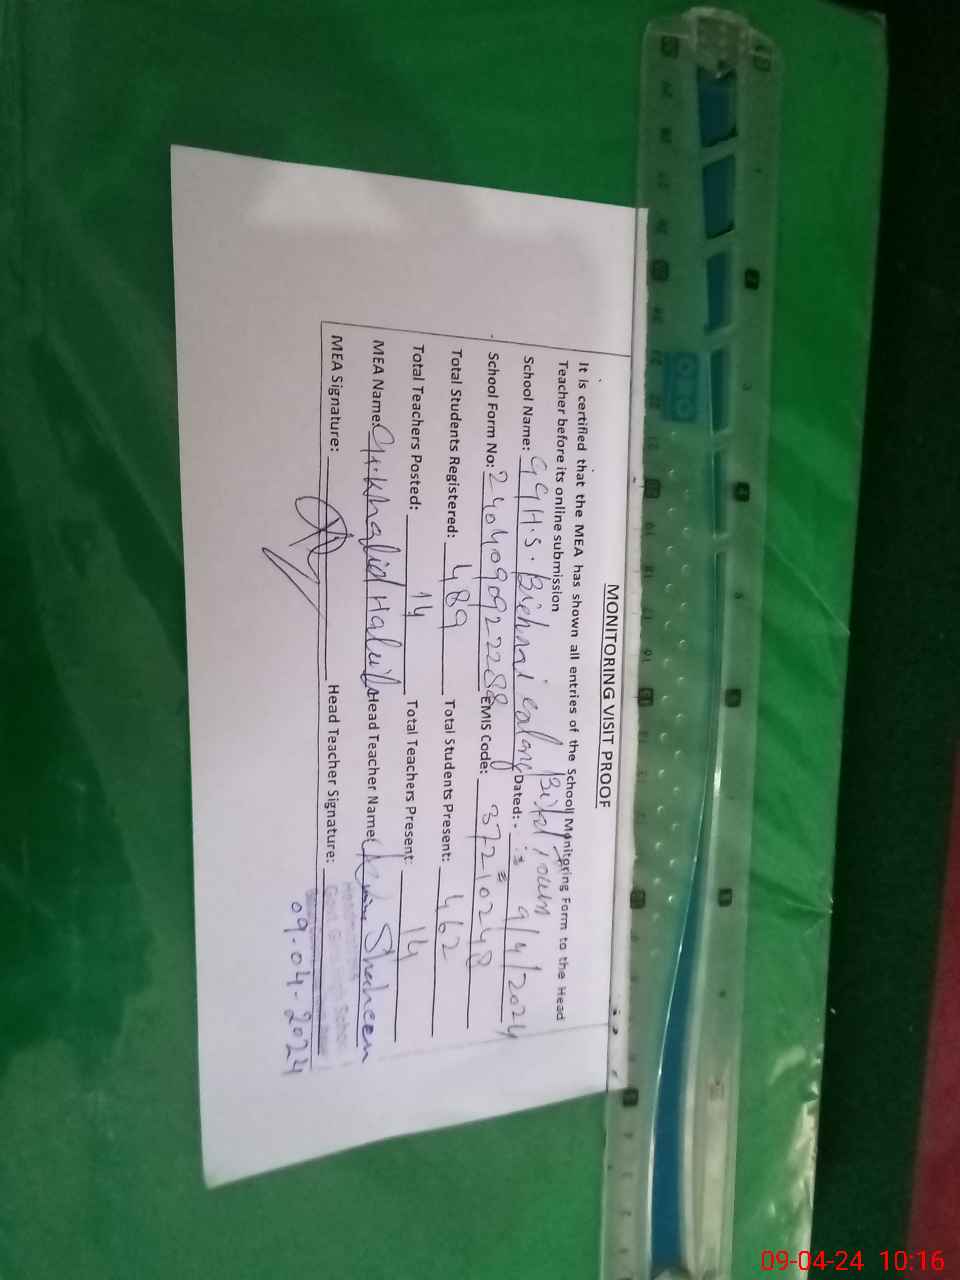 MONITORING VISIT PROOF
It is certified that the MEA has shown all entries of the School Monitoring Form to the Head
Teacher before its online submission
School Name: GGHS. Dated:- 9/4/2024
School Form No: EMIS Code: 37210248
Total Students Registered: 489 Total Students Present: 462
Total Teachers Posted: 14 Total Teachers Present: 14
MEA Name: Khalid Head Teacher Name: Shaheen
MEA Signature: Head Teacher Signature:
09-04-2024
09-04-24 10:16